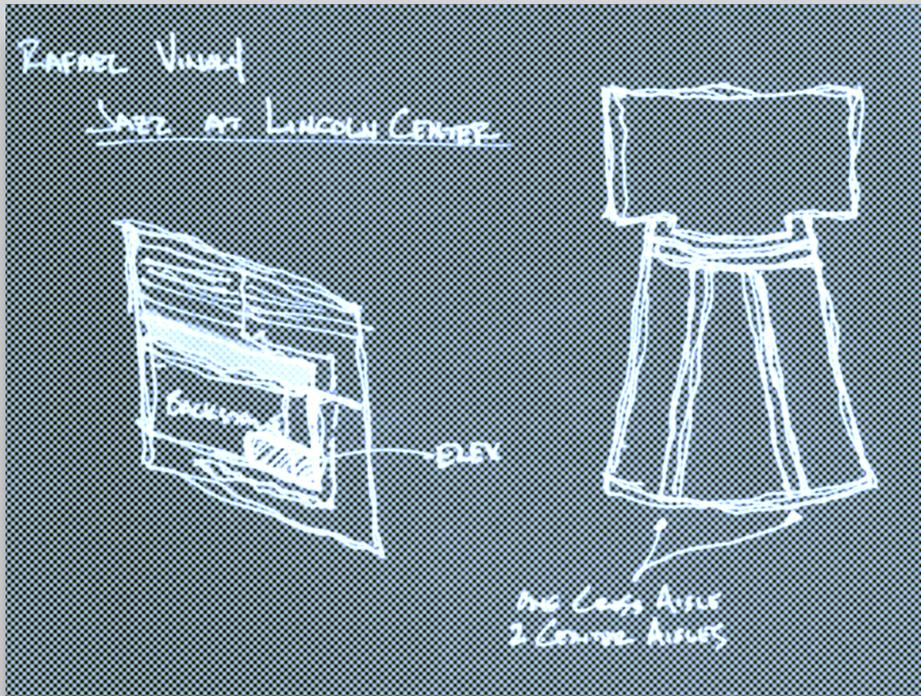 RAFAEL VINOLY
JAZZ AT LINCOLN CENTER
BACKSTAGE
ELEV
ONE CROSS AISLE
2 CENTER AISLES